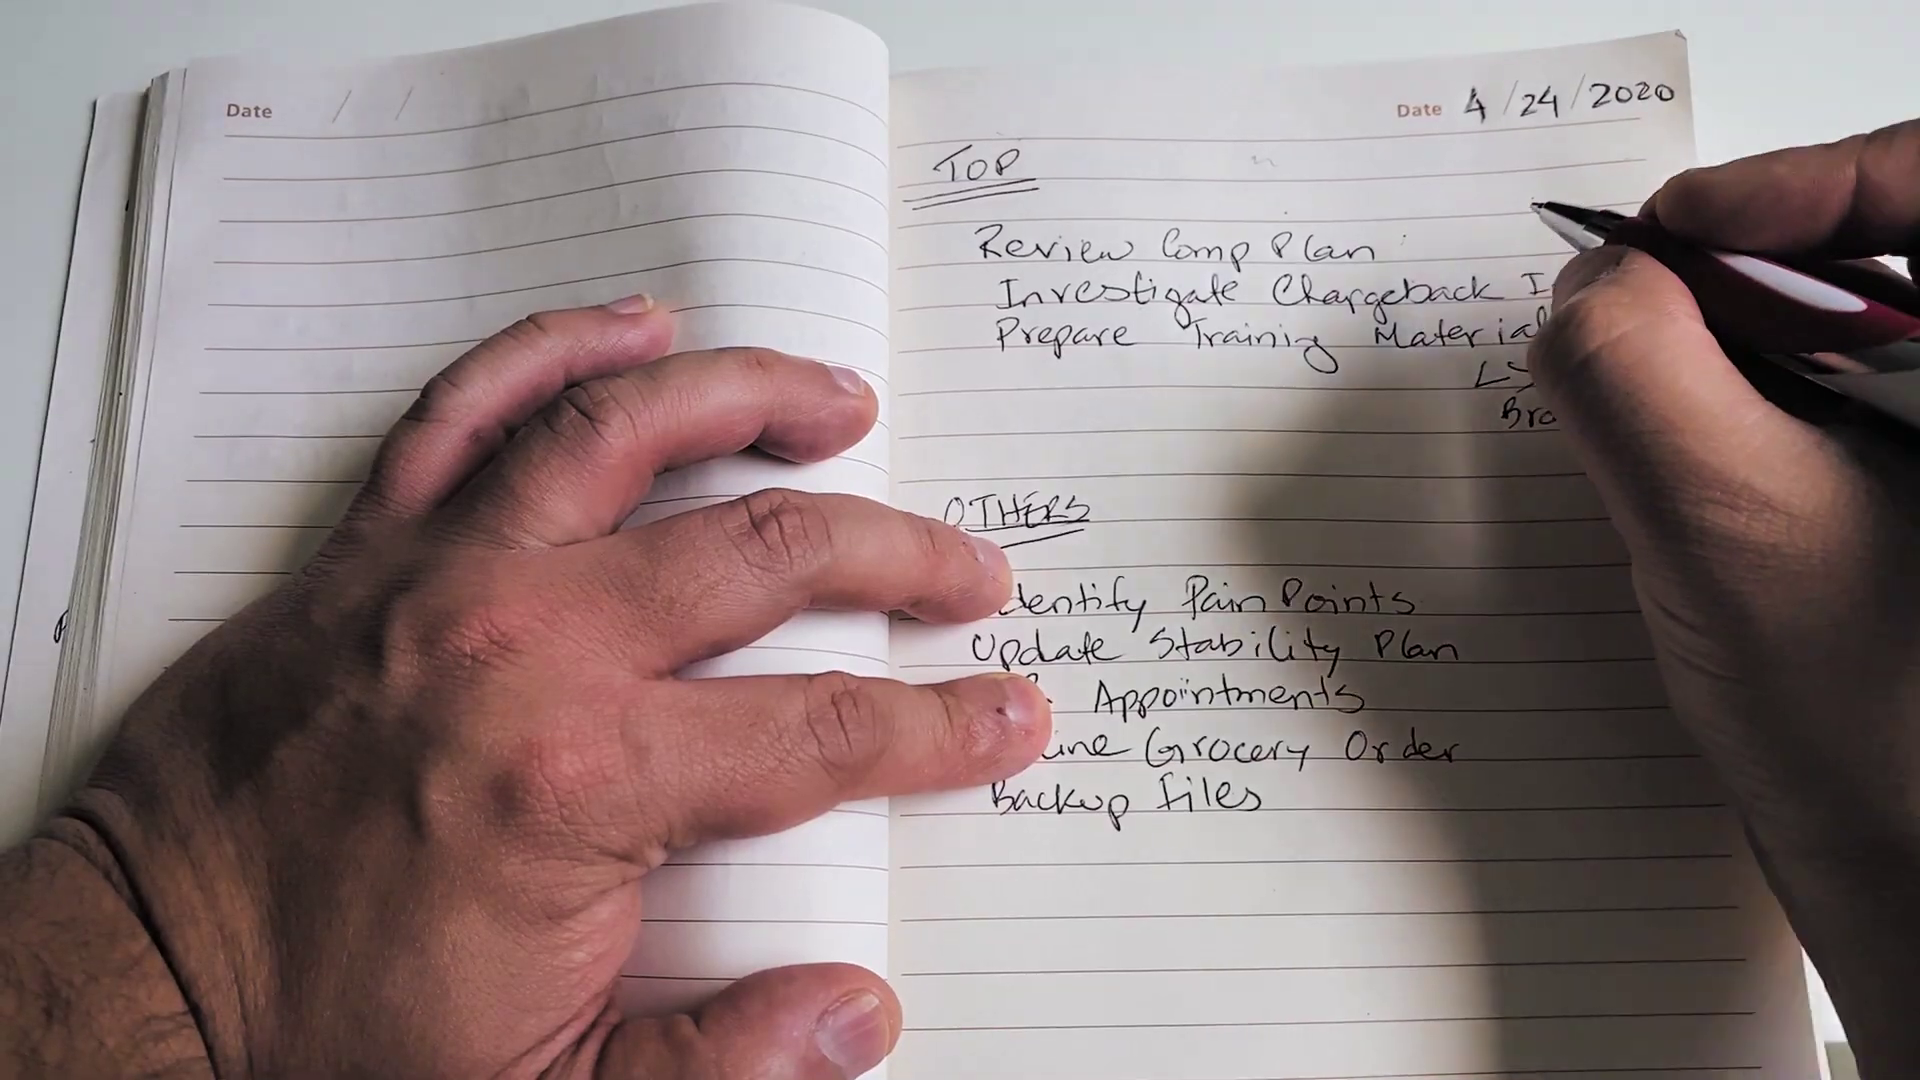 Date / /
Date 4/24/2020
TOP
Review Comp Plan
Investigate Chargeback
Prepare Training Material
OTHERS
Identify Pain Points
Update Stability Plan
Appointments
Grocery Order
Backup Files